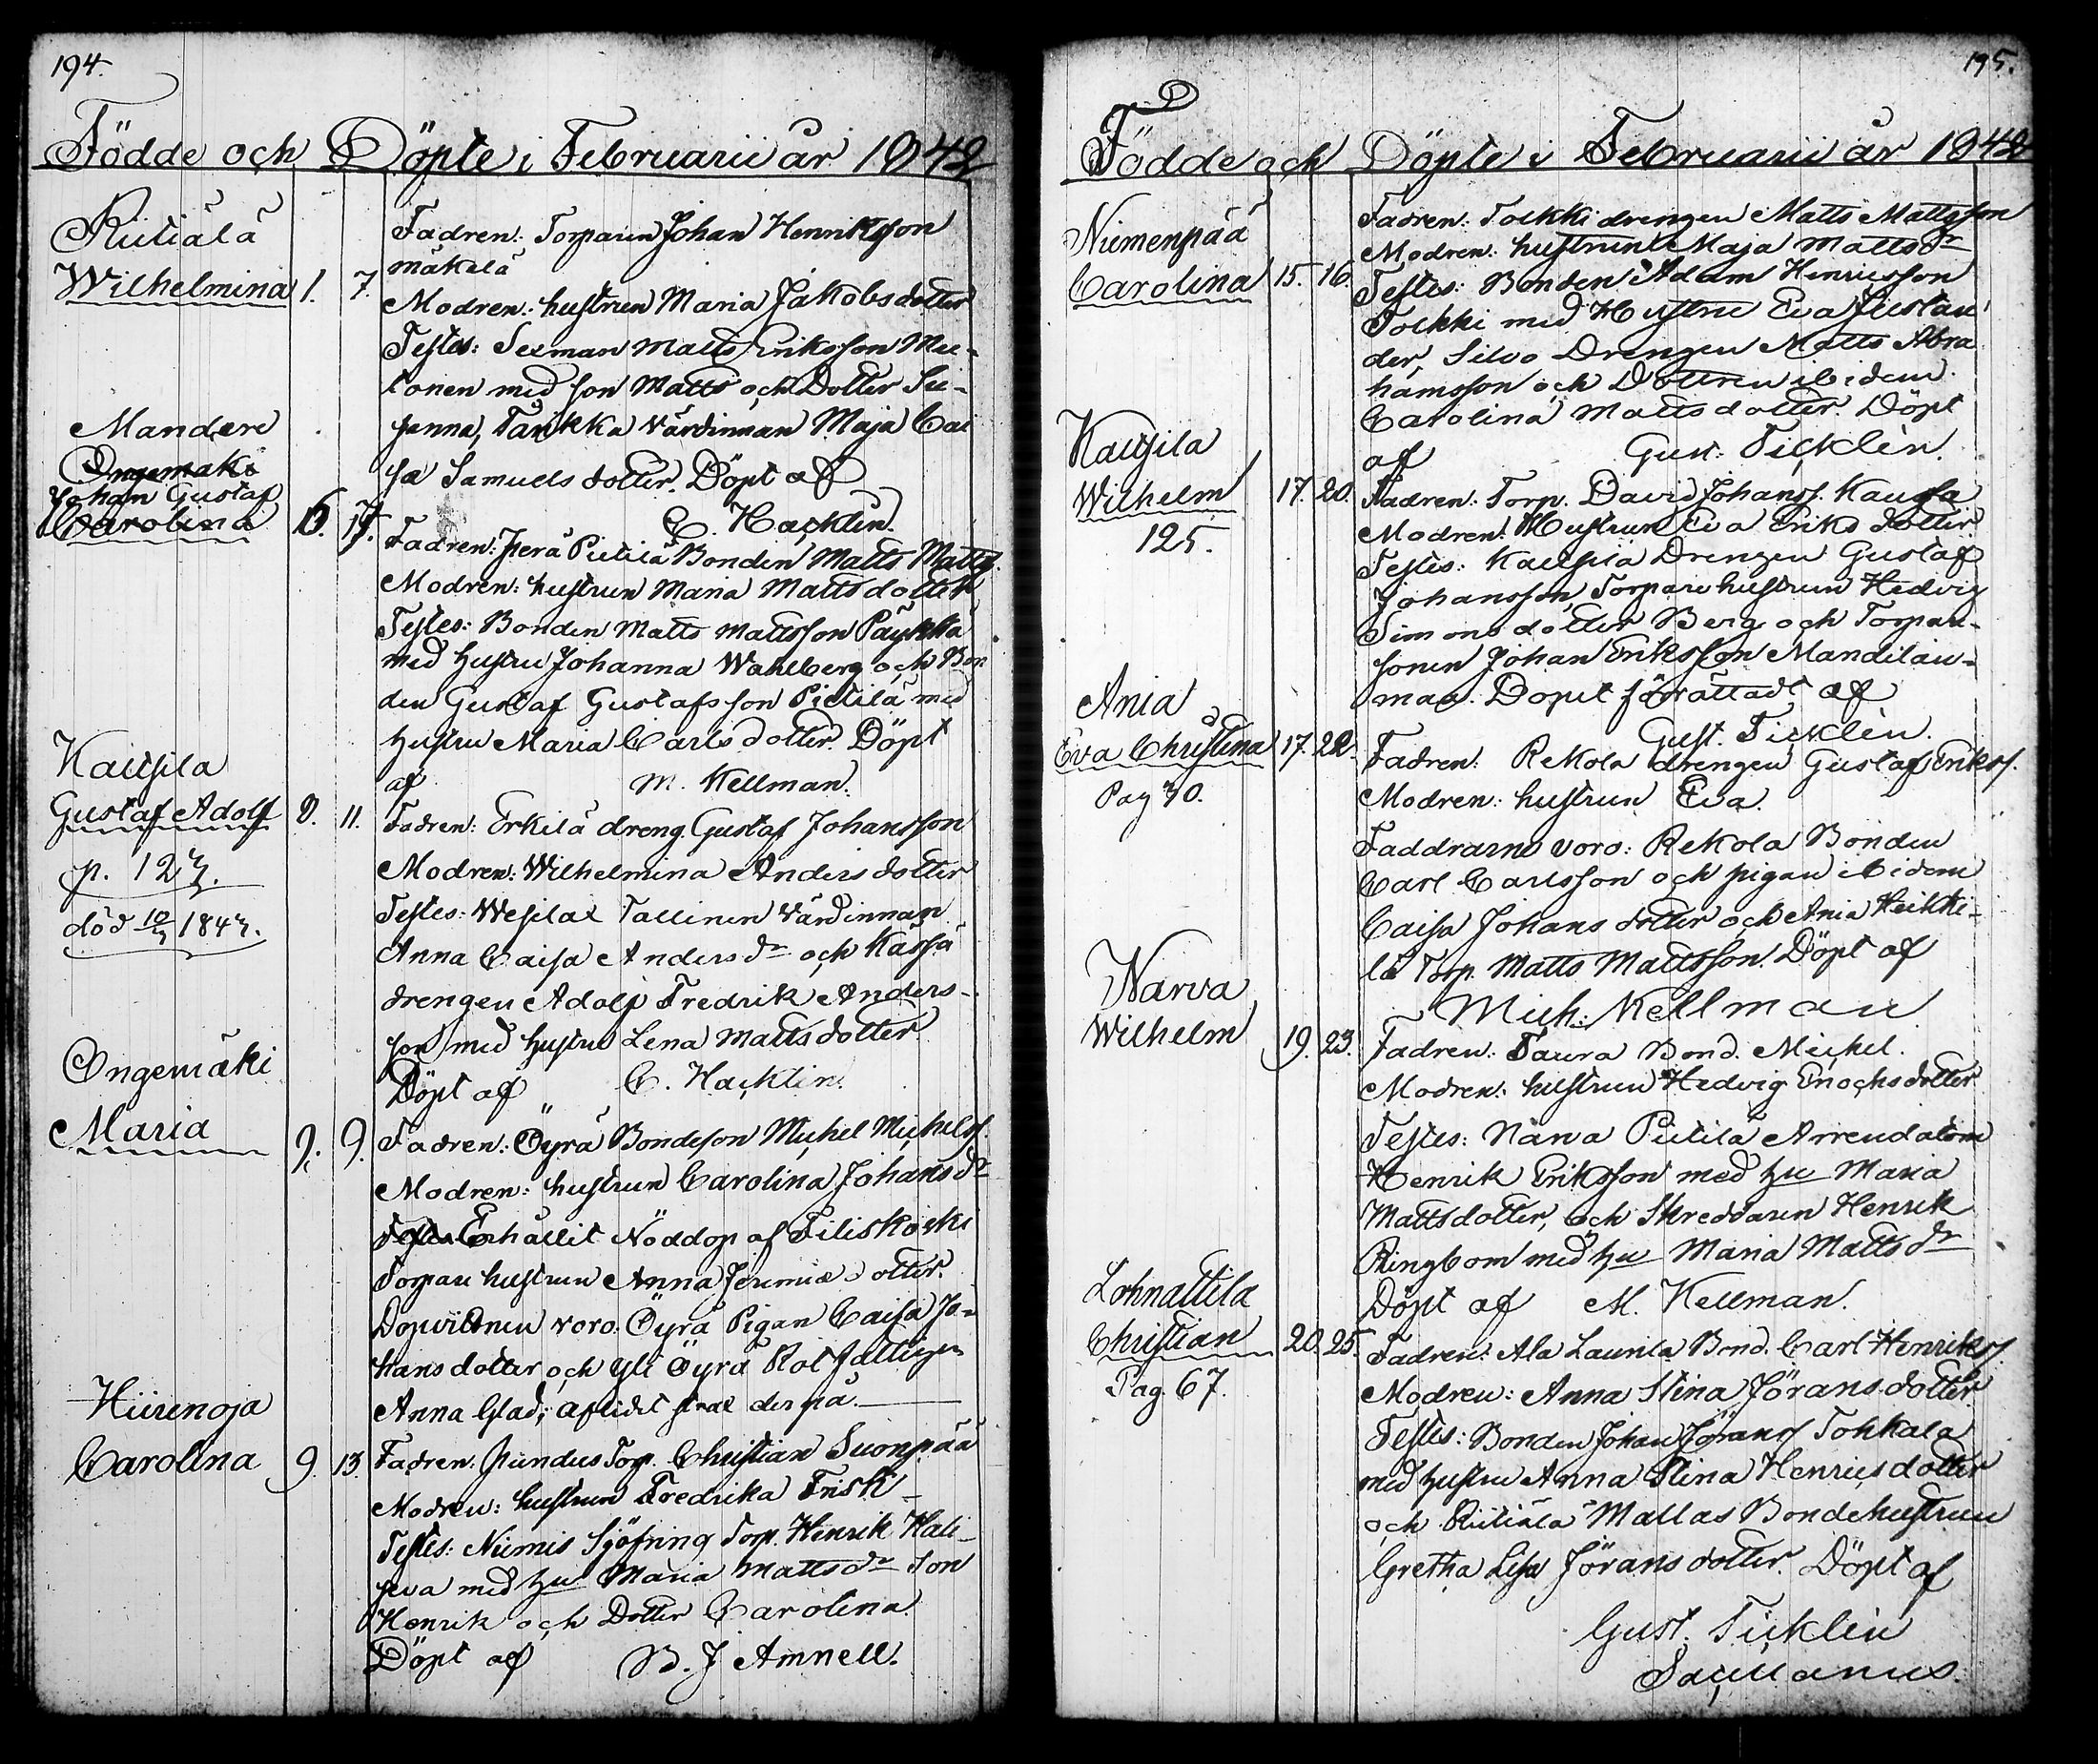 194.
Födde och Döpte i Februarii år 1842
Riitiälä
Wilhelmina 1. 7.
Fadren: Torparen Johan Henriksson
Mäkelä
Modren: hustrun Maria Jakobsdotter
Testes: Sexman Matts Eriksson Mu-
tonen med son Matts och Dotter Su-
sanna, Tarkka Värdinnan Maja Cai
sa Samuelsdotter. Döpt af
C. Hacklin.
Mandere
Ongemäki
Johan Gustaf
Carolina
Fadren: Perä Pietilä Bonden Matts Mattss.
Modren: hustrun Maria Mattsdotter
Testes: Bonden Matts Mattsson Päykkä
med hustru Johanna Wahlberg och Bon
den Gustaf Gustafsson Pietilä med
hustru Maria Carlsdotter. Döpt
af M. Kellman.
Kausila
Gustaf Adolf 8. 11.
p. 127.
död 10/7 1847.
Fadren: Erkilä dreng. Gustaf Johansson
Modren: Wilhelmina Andersdotter
Testes: Wesilax Tallinen Värdinnan
Anna Caisa Andersdr och Kässä
drengen Adolf Fredrik Anders-
son med hustru Lena Mattsdotter.
Döpt af C. Hacklin.
Ongemäki
Maria 9. 9.
Fadren: Öyrä Bondeson Michel Michelss.
Modren: hustrun Carolina Johansdr
Testes Erhållit Nöddop af Filiskoski
Torpare hustrun Anna Jeremiædotter.
Dopvittnen voro: Öyrä Pigan Caisa Jo-
hansdotter och Yli Öyrä Rot fattigen
Anna Glad; aflidit strax derpå.
Hiirenoja
Carolina 9. 13.
Fadren: Torp. Christian Suonpää
Modren: hustrun Fredrika Frisk
Testes: Niemis Torp. Henrik Hali-
seva med hu Maria Mattsdr Son
Henrik och Dotter Carolina.
Döpt af B. J Amnell.
195.
Födde och Döpte i Februarii år 1842
Niemenpää
Carolina 15. 16.
Fadren: Tolkki drengen Matts Mattsson
Modren: hustrun Maja Mattsdr
Testes: Bonden Adam Henricsson
Tolkki med Hustru Eva Justan
der, Silvo Drengen Matts Abra
hamsson och Dottren ibidem
Carolina Mattsdotter. Döpt
af Gust. Ticklén.
Kausila
Wilhelm 17. 20.
125.
Fadren: Torp. David Johanss. Kausela
Modren: Hustrun Eva Eriksdotter
Testes: Kausila Drengen Gustaf
Johansson, Torpare hustrun Hedvig
Simonsdotter Berg och Torpare-
sonen Johan Eriksson Mandilau-
man. Dopet förrättadt af
Gust. Ticklén.
Ania
Eva Christina 17. 22.
Pag 70.
Fadren: Rekola drengen Gustaf Erikss.
Modren: hustrun Eva.
Faddrarne voro: Rekola Bonden
Carl Carlsson och pigan ibidem
Caisa Johansdotter och Ania Heikki-
lä Torp. Matts Mattsson. Döpt af
Mich: Kellman
Narva
Wilhelm 19. 23.
Fadren: Taura Bond. Michel.
Modren: hustrun Hedvig Enochsdotter
Testes: Narva Pietilä Arrendatorn
Henrik Eriksson med hu Maria
Mattsdotter, och Skreddaren Henrik
Ringbom med hu Maria Mattsdr
Döpt af M. Kellman.
Lohnattila
Christian 20. 25.
Pag. 67.
Fadren: Ala Launila Bond. Carl Henrikss.
Modren: Anna Stina Jöransdotter
Testes: Bonden Johan Jöranss Tokkala
med hustru Anna Stina Henricsdotter
och Riitiälä Mallas Bondehustrun
Gretha Lisa Jöransdotter. Döpt af
Gust. Ticklén